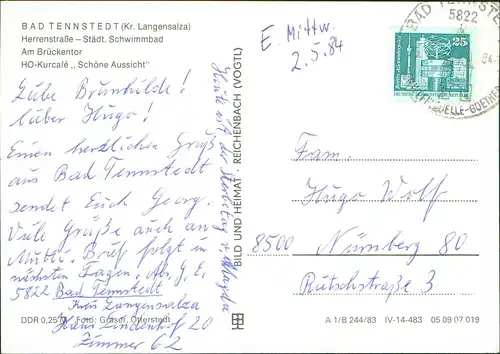 BAD TENNSTEDT (Kr. Langensalza)
Herrenstraße – Städt. Schwimmbad
Am Brückentor
HO-Kurcafé „Schöne Aussicht"
E. Mittw.
2.5.84
BAD TENNSTE
5822
84-
25
ELLE-GOETHE
Liebe Brunhilde!
lieber Hugo!
Einen herzlichen Gruß
aus Bad Tennstedt
sendet Euch Georg.
Viele Grüße auch an
Mutti. Brief folgt in
nächsten Tagen. Abs. G. E.
5822 Bad Tennstedt
Kreis Langensalza
Haus Lindenhof 20
Zimmer 62
Heute ist der
BILD UND HEIMAT · REICHENBACH (VOGTL)
Fam.
Hugo Wolf
8500 Nürnberg 80
Rutschstraße 3
DDR 0,25 M Foto: Gräser, Otterstedt
A 1/B 244/83 IV-14-483 05 09 07 019